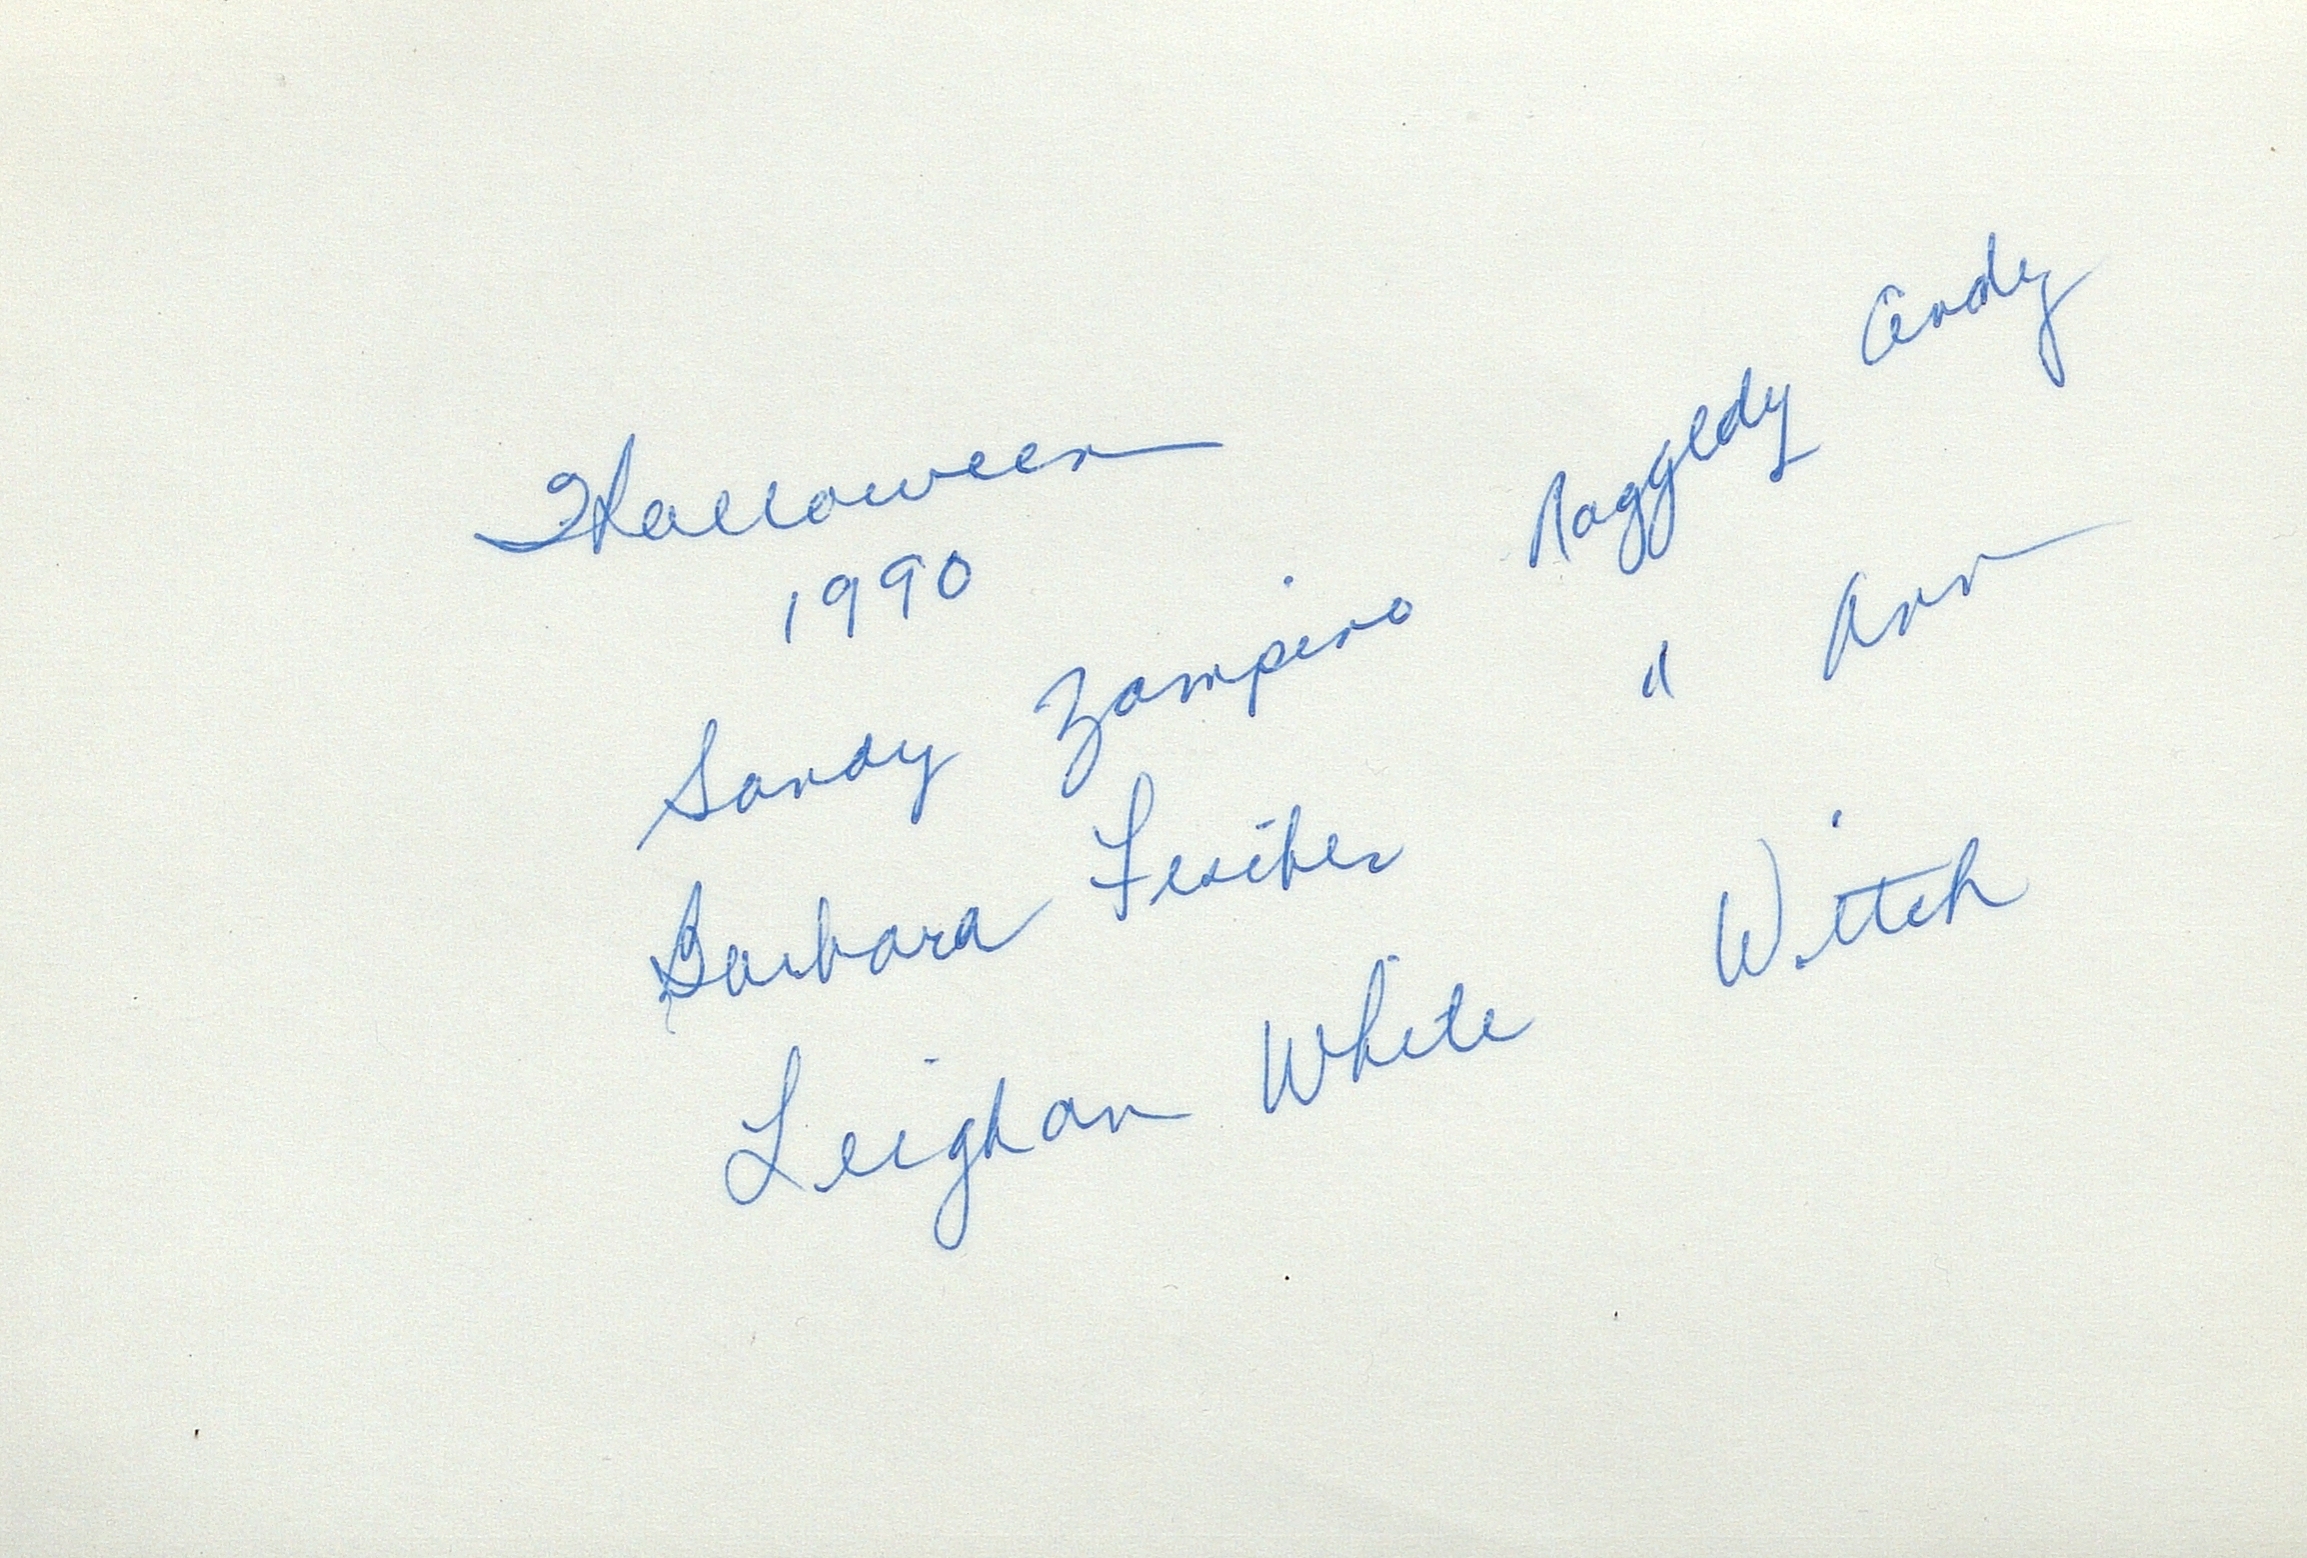 Halloween
1990
Sandy Zampino Raggedy Andy
Barbara " Ann
Leighan White Witch